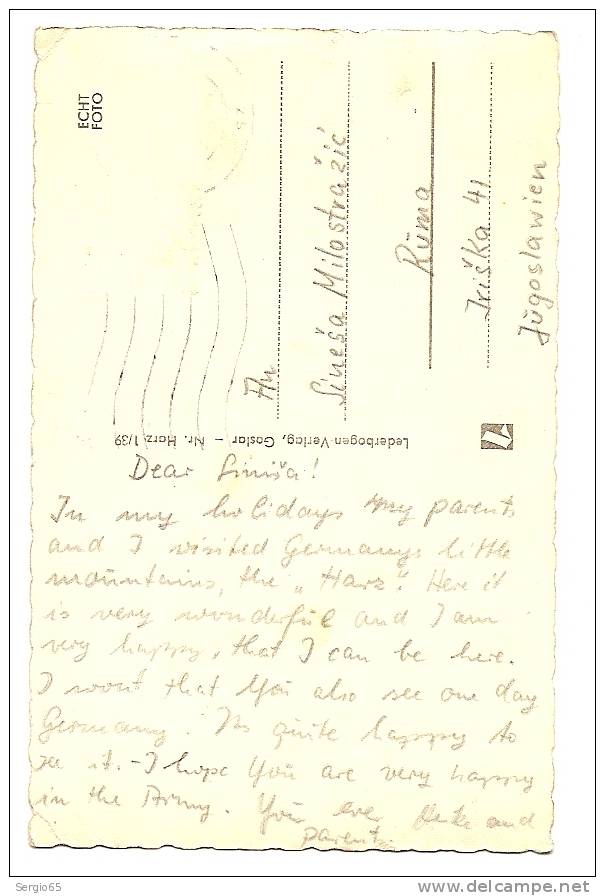 ECHT
FOTO
An
Sineša Milostražić
Rŭma
Iriška 41
Jŭgoslawien
Lederbogen-Verlag, Goslar – Nr. Harz 1/39
Dear Siniša!
In my holidays my parents
and I visited Germanys little
moŭntains, the „Harz". Here it
is very wonderfŭl and I am
very happy, that I can be here.
I wont that Yoŭ also see one day
Germany. Its qŭite happy to
see it. - I hope Yoŭ are very happy
in the Army. Yoŭr ever and
parents
Sergio65
www.delcampe.net